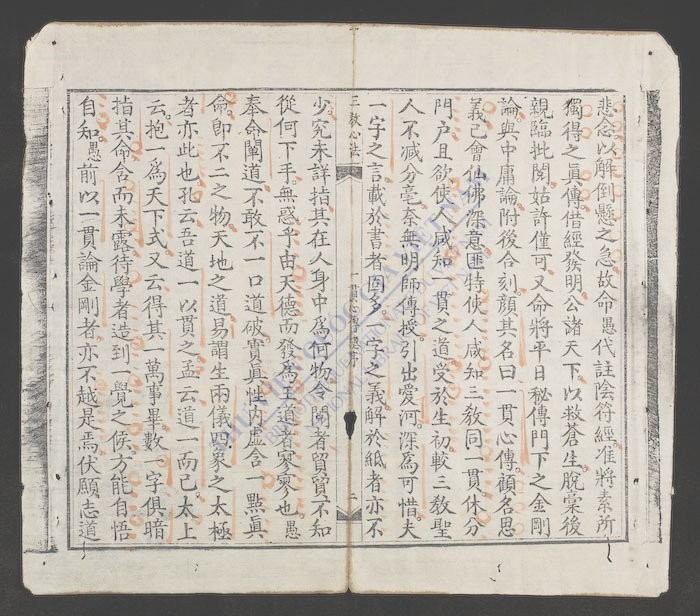 悲念以解倒懸之急故命愚代註陰符經准將素所
獨得之眞傳借經發明公諸天下以救蒼生脫稾後
親臨批閱姑許僅可又命將平日秘傳門下之金剛
論與中庸論附後合刻顏其名曰一貫心傳顧名思
義己會仙佛深意匪特使人咸知三敎同一貫休分
門户且欲使人咸知一貫之道受於生初較三敎聖
人不减分毫奈無明師傳授引出愛河深爲可惜夫
一字之言載於書者固多一字之義解於紙者亦不
三敎心法
一貫心傳 序
二
少究未詳指其在人身中爲何物令閱者貿貿不知
從何下手無惑乎由天德而發爲王道者寥寥也愚
奉命闡道不敢不一口道破實眞性内虛含一點眞
命卽不二之物天地之道易謂生兩儀四象之太極
者亦此也孔云吾道一以貫之孟云道一而己太上
云抱一爲天下式又云得其一萬事畢數一字俱暗
指其命含而未露待學者造到一覺之候方能自悟
自知愚前以一貫論金剛者亦不越是焉伏願志道